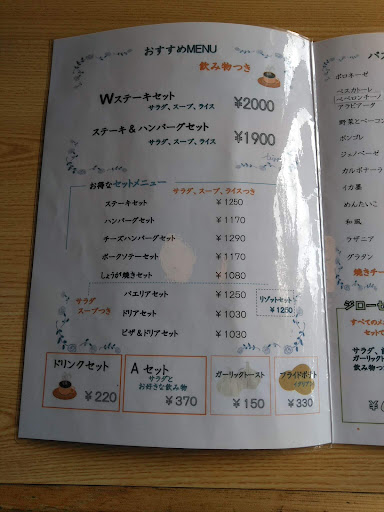 おすすめMENU
飲み物つき
Wステーキセット ¥2000
サラダ、スープ、ライス
ステーキ&ハンバーグセット ¥1900
サラダ、スープ、ライス
お得なセットメニュー サラダ、スープ、ライスつき
ステーキセット ¥1250
ハンバーグセット ¥1170
チーズハンバーグセット ¥1290
ポークソテーセット ¥1170
しょうが焼きセット ¥1080
サラダ
スープつき
パエリアセット ¥1250
ドリアセット ¥1030
ピザ&ドリアセット ¥1030
リゾットセット
¥1250
ドリンクセット
¥220
Aセット
サラダと
お好きな飲み物
¥370
ガーリックトースト
¥150
フライドポテト
¥330
ボロネーゼ
ペスカトーレ
ペペロンチーノ
アラビアータ
野菜とベーコン
ボンゴレ
ジェノベーゼ
カルボナーラ
イカ墨
めんたいこ
和風
ラザニア
グラタン
焼きチー
すべての
セットで
サラダ、
ガーリック
飲み物つ